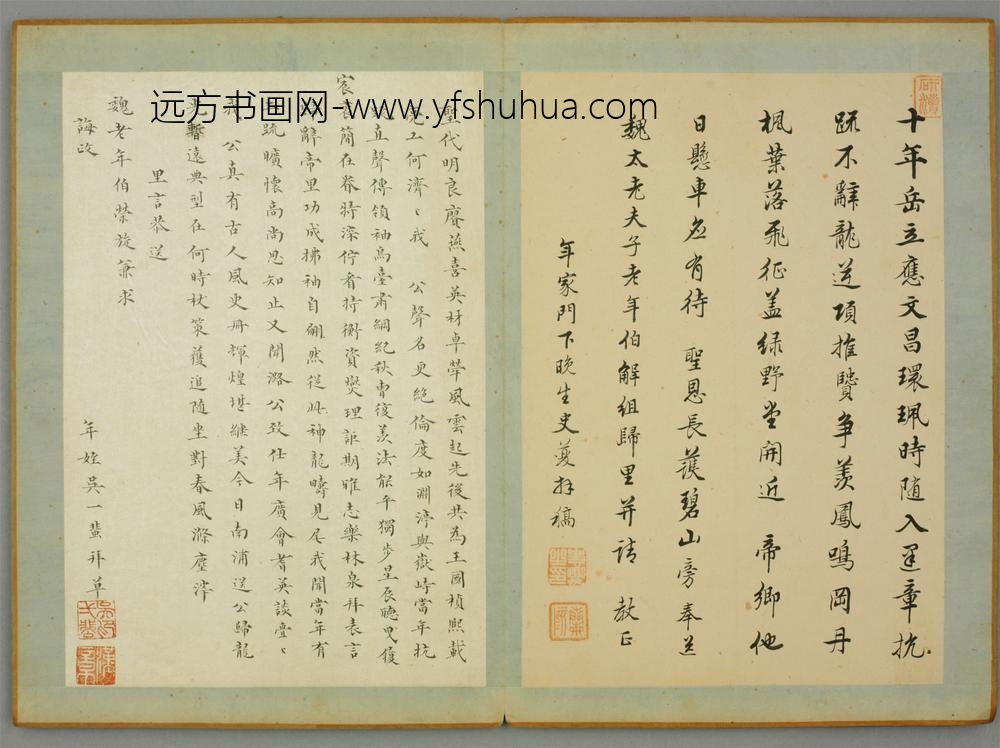 十年岳立應文昌環珮時随入建章抗
疏不辭龍逆項推賢争羨鳳鳴岡丹
楓葉落飛征盖绿野堂開近 帝鄉他
日懸車应有待 聖恩長護碧山旁奉送
魏太老夫子老年伯解組歸里并請 教正
年家門下晚生史夔拜稿
聖代明良賡燕喜英材卓犖風雲起先後共為王國楨熙載
亮工何濟〻我 公聲名更絕倫度如淵渟與嶽峙當年抗
疏直聲傳領袖烏臺肅綱紀秋曹復羨法能平獨步星辰聽曳履
宸衷簡在眷特深佇看持衡資爕理詎期雅志樂林泉拜表言
辭帝里功成拂袖自翩然從此神龍疇見尾我聞當年有
疏曠懷高尚思知止又聞潞公致仕年廣會耆英談亹〻
我 公真有古人風史册輝煌堪繼美今日南浦送公歸龍
光暫遠典型在何時杖策獲追随坐對春風滌塵滓
里言恭送
魏老年伯榮旋兼求
誨政
年姪吳一蜚拜草
远方书画网-www.yfshuhua.com